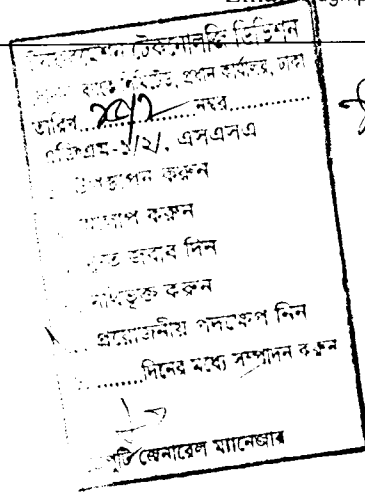 টেকনোলজি ডিভিশন
লিমিটেড, প্রধান কার্যালয়, ঢাকা
তারিখ............নম্বর...............
এজিএম-১/২/. এসএসএ
উপস্থাপন করুন
আলাপ করুন
দ্রুত জবাব দিন
নথিভুক্ত করুন
প্রয়োজনীয় পদক্ষেপ নিন
.........দিনের মধ্যে সম্পাদন করুন
ডেপুটি জেনারেল ম্যানেজার